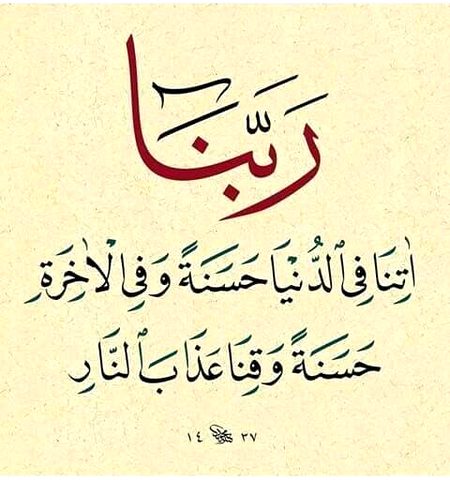 رَبَّنَا
اٰتِنَا فِي ٱلدُّنْيَا حَسَنَةً وَفِي الْاٰخِرَةِ
حَسَنَةً وَقِنَا عَذَابَ ٱلنَّارِ
١٤ ٣٧